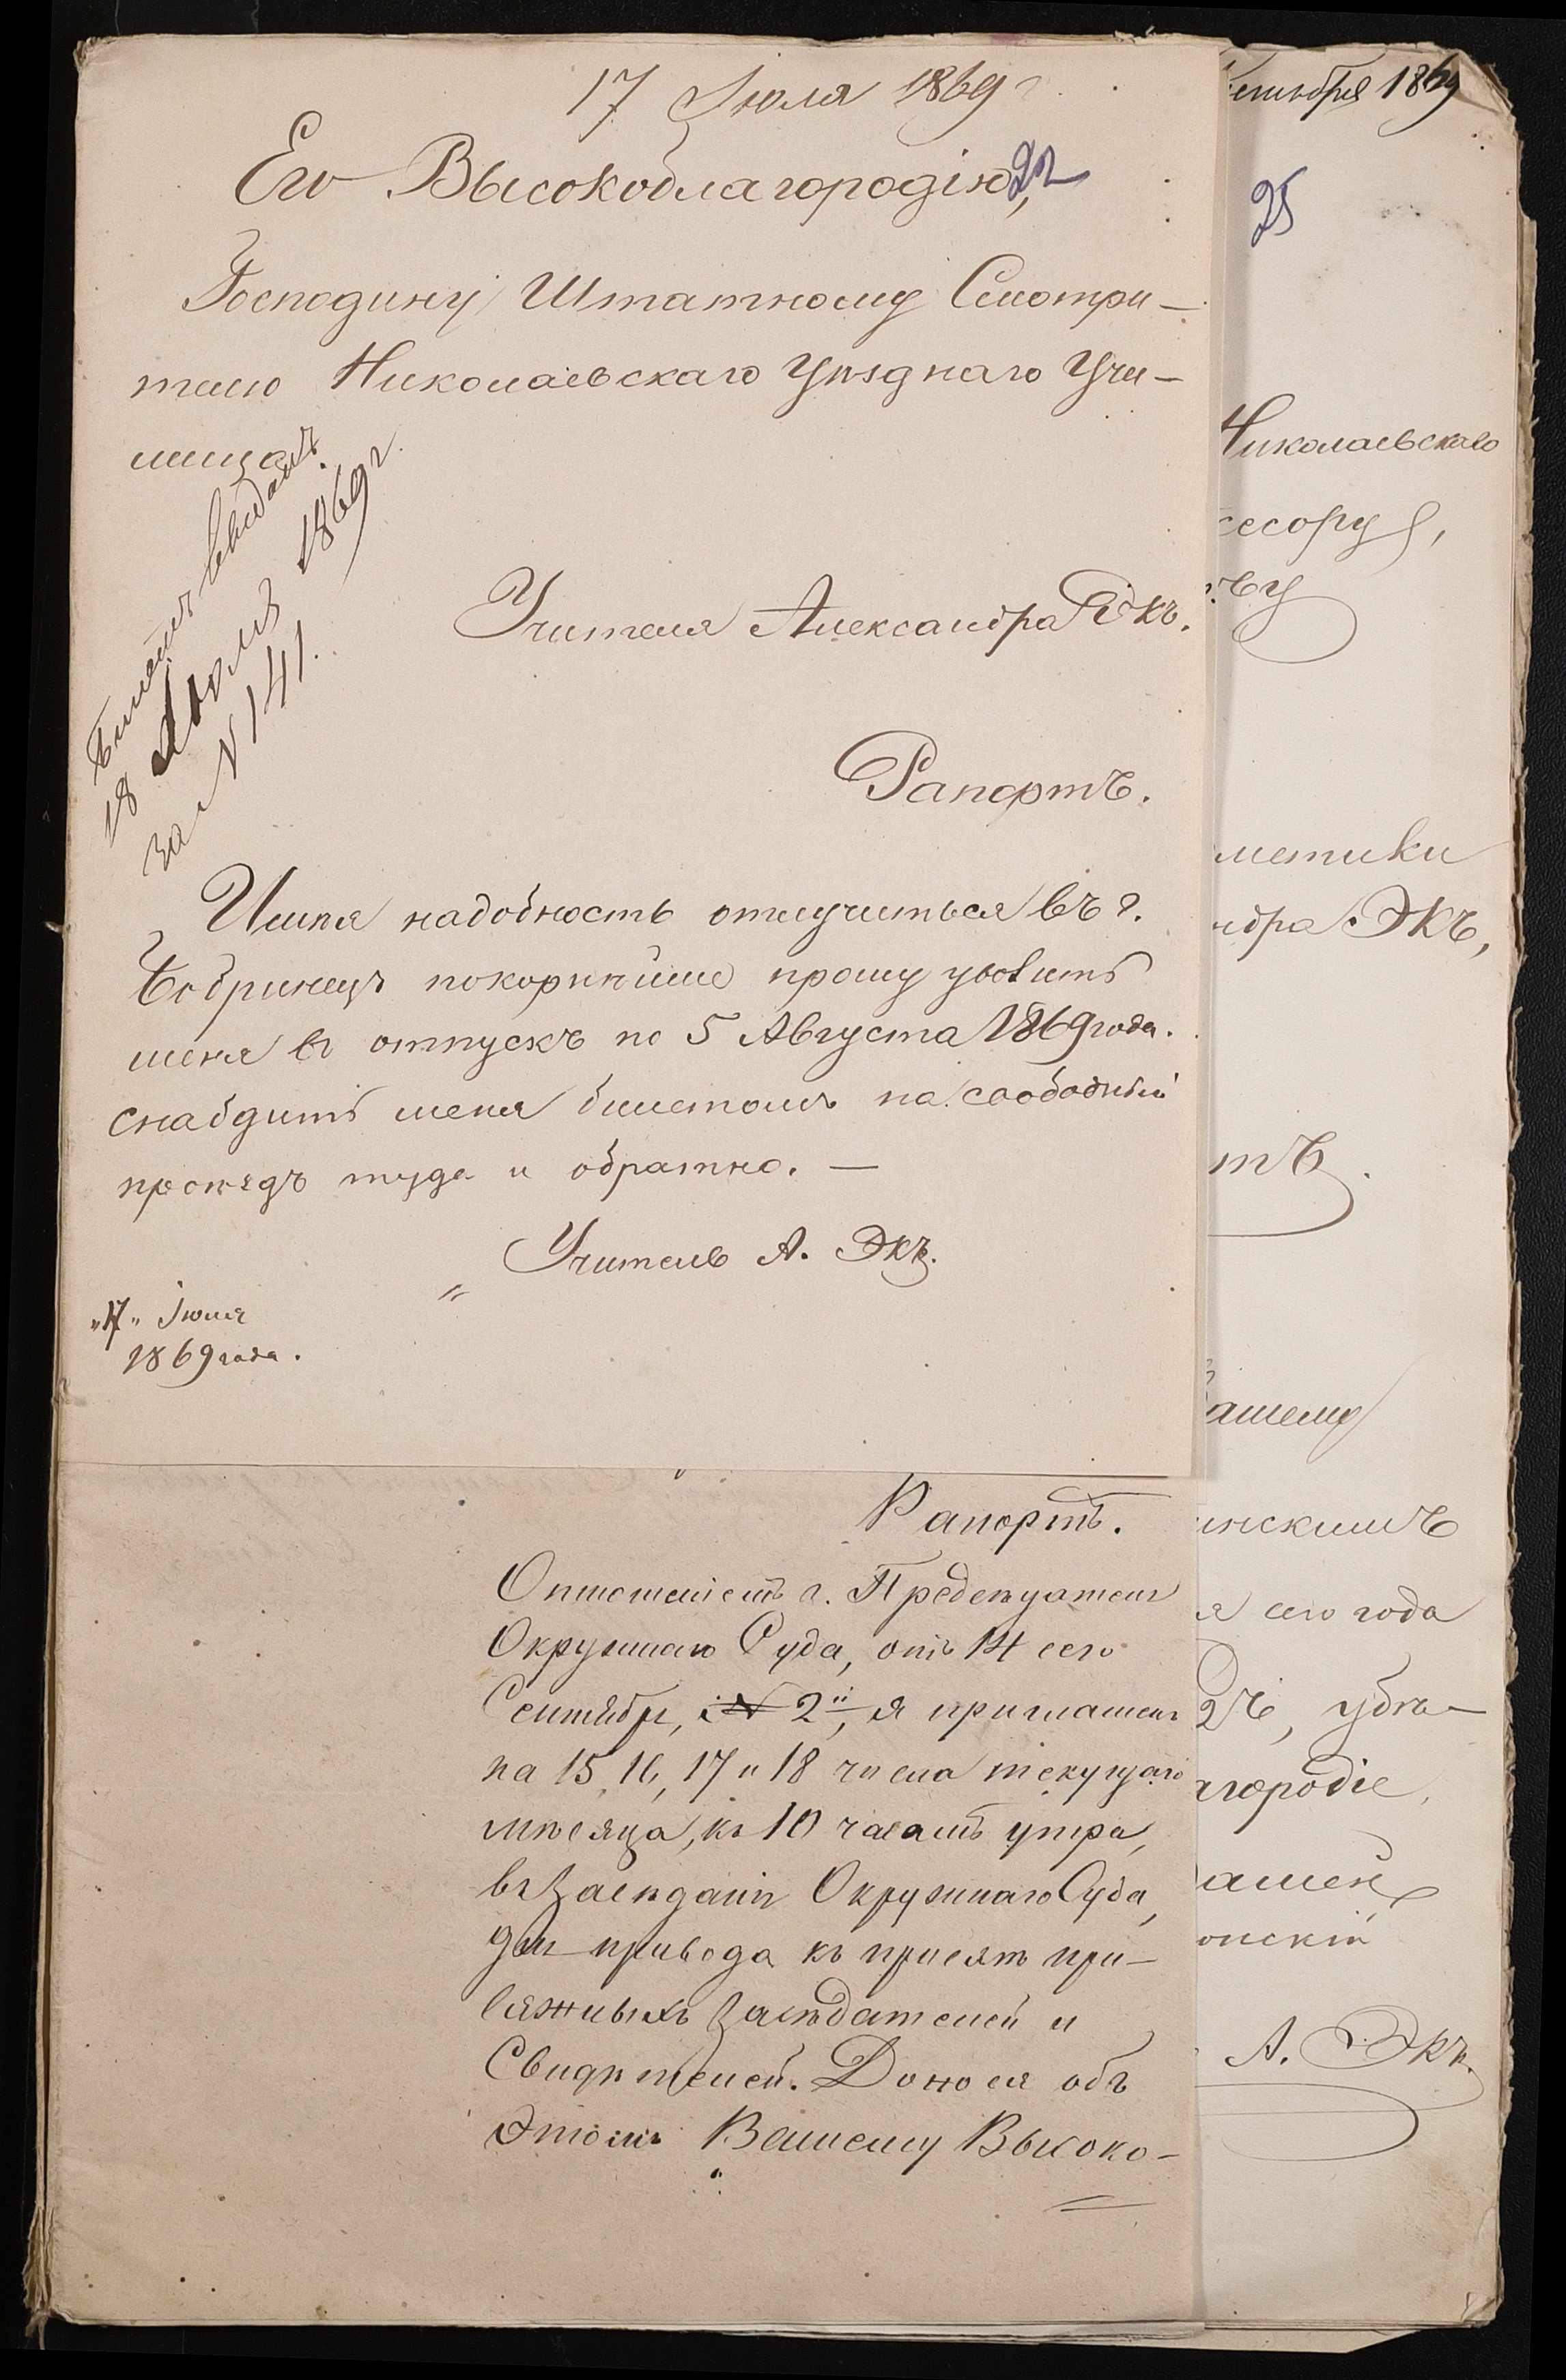 17 Июля 1869 г.
Его Высокоблагородію, 22
Господину Штатному Смотри-
телю Николаевскаго Уѣзднаго Учи-
лища.
Билетъ выданъ
18 Іюля 1869 г.
за N 141.
Учителя Александра Экъ.
Рапортъ.
Имѣя надобность отлучиться въ г.
Бобринецъ покорнѣйше прошу уволить
меня въ отпускъ по 5 Августа 1869 года.
снабдить меня билетомъ на свободный
проѣздъ туда и обратно. —
Учитель А. Экъ.
"17" Іюля
1869 года.
Рапортъ.
Отношеніемъ г. Предсѣдателя
Окружнаго Суда, отъ 14 сего
Сентября, N 2й, я приглашенъ
на 15, 16, 17 и 18 числа текущаго
мѣсяца, къ 10 часамъ утра,
въ Засѣданіи Окружнаго Суда,
для привода къ присягѣ при-
сяжныхъ Засѣдателей и
Свидѣтелей. Донося объ
этомъ Вашему Высоко-
ентября 1869
25
Николаевскаго
сесору,
ву
метики
ндра Экъ,
тъ.
ашему
инскимъ
я сего года
2й, убѣ-
агородіе,
ашен
онскій
А. Экъ.